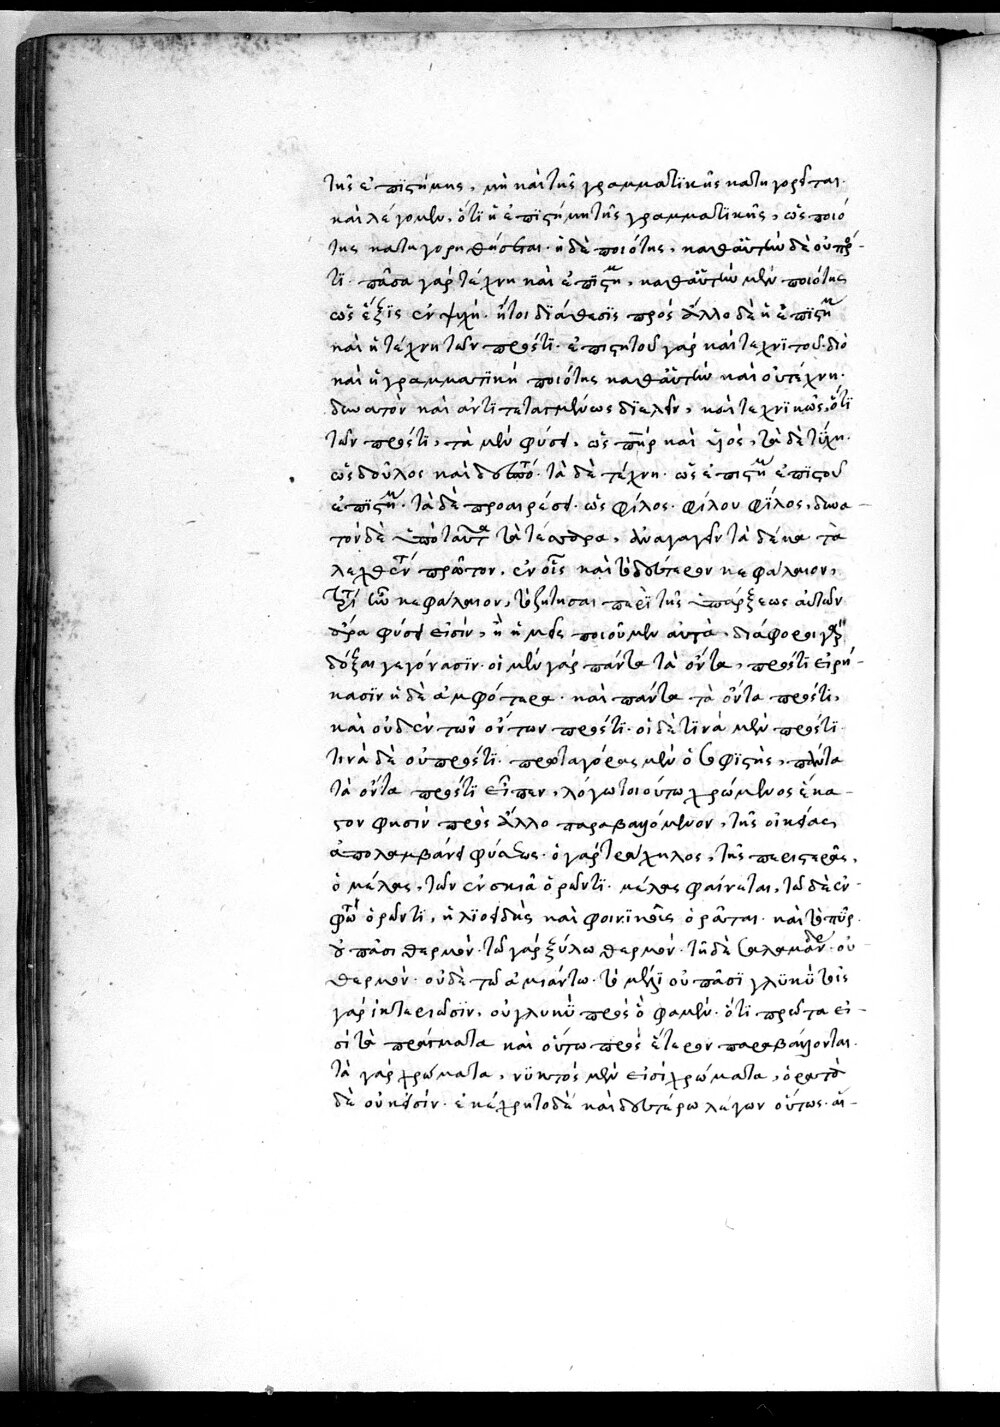 τῆς ἐπϊστήμης, μὴ καὶ τῆς γραμματϊκῆς κατηγορεῖται.
καὶ λέγομεν, ὅτϊ ἡ ἐπϊστήμη τῆς γραμματϊκῆς, ὡς ποιό
της κατηγορηθήσεται. ἡ δὲ ποιότης, καθ' αὑτὴν δὲ οὐ πρός
τϊ. πᾶσα γὰρ τέχνη καὶ ἐπϊστήμη, καθ' αὑτὴν μὲν ποιότης
ὡς ἕξϊς ἐν ψυχῇ. ἤτοι δϊάθεσϊς πρὸς ἄλλο δὲ ἡ ἐπϊστήμη
καὶ ἡ τέχνη τῶν πρόςτϊ. ἐπιστητοῦ γὰρ καὶ τεχνϊτοῦ. διὸ
καὶ ἡ γραμματϊκὴ ποιότης καθ' αὑτὴν καὶ οὐ τέχνη.
δυνατὸν καὶ ἀντϊτεταγμένως δϊελεῖν, καὶ τεχνϊκῶς, ὅτϊ
τῶν πρόςτϊ, τὰ μὲν φύσει, ὡς πῆρ καὶ υἱός, τὰ δὲ τύχη.
ὡς δοῦλος καὶ δεσπότης. τὰ δὲ τέχνη. ὡς ἐπιστήμη ἐπϊστητοῦ
ἐπϊστήμη. τὰ δὲ προαιρέσει. ὡς φίλος. φίλου φϊλος, δυνα-
τὸν δὲ ὑπὸ ταῦτα τὰ τέσσαρα, ἀναγαγεῖν τὰ δέκα τὰ
λεχθέντα πρῶτον, ἐν οἷς καὶ τὸ δεύτερον κεφάλαιον,
τρίτον κεφάλαιον, τὸ ζητῆσαι περὶ τῆς ὑπάρξεως αὐτῶν
ἆρα φύσει εἰσὶν, ἢ ἡμεῖς ποιοῦμεν αὐτά, διάφοροι γὰρ
δόξαι γεγόνασϊν. οἱ μὲν γὰρ πάντα τὰ ὄντα, πρόςτϊ εἰρή-
κασϊν ἡ δὲ ἀμφότερα. καὶ πάντα τὰ ὄντα πρόςτϊ,
καὶ οὐδὲν τῶν ὄντων πρόςτϊ. οἱ δὲ τϊνὰ μὲν πρόςτϊ
τινὰ δὲ οὐ πρόςτϊ. πρωταγόρας μὲν ὁ σοφϊστὴς, πάντα
τὰ ὄντα πρόςτϊ εἶπεν, λόγω τοιούτω χρώμενος ἕκα-
στον φησὶν πρὸς ἄλλο παραβαλλόμενον, τῆς οἰκείας
ἀπολαμβάνει φύσεως. ὁ γὰρ τράχηλος, τῆς περιστερᾶς,
ὁ μέλας, τῶν ἐν σκιᾶ ὁρῶντϊ. μέλας φαίνεται, τῶ δὲ ἐν
φωτὶ ὁρῶντϊ, ἡλϊοειδὴς καὶ φοινϊκοῦς ὁρᾶται. καὶ τὸ πῦρ.
οὐ πᾶσι θερμόν. τῶ γὰρ ξύλω θερμόν. τῆ δὲ σαλαμάνδρα οὐ
θερμόν. οὐδὲ τῶ ἀμιάντω. τὸ μέλϊ οὐ πᾶσϊ γλυκὺ τοῖς
γὰρ ἰκτεριῶσϊν, οὐ γλυκὺ πρὸς ὃ φαμὲν. ὅτϊ πρῶτα εἰ-
σὶ τὰ πράγματα καὶ οὕτω πρὸς ἕτερον παραβάλλονται.
τὰ γὰρ χρώματα, νϋκτὸς μὲν εἰσὶ χρώματα, ὁρατὰ
δὲ οὐκ εἰσίν. ἐκέχρητο δὲ καὶ δευτέρω λέγων οὕτως. αἱ-